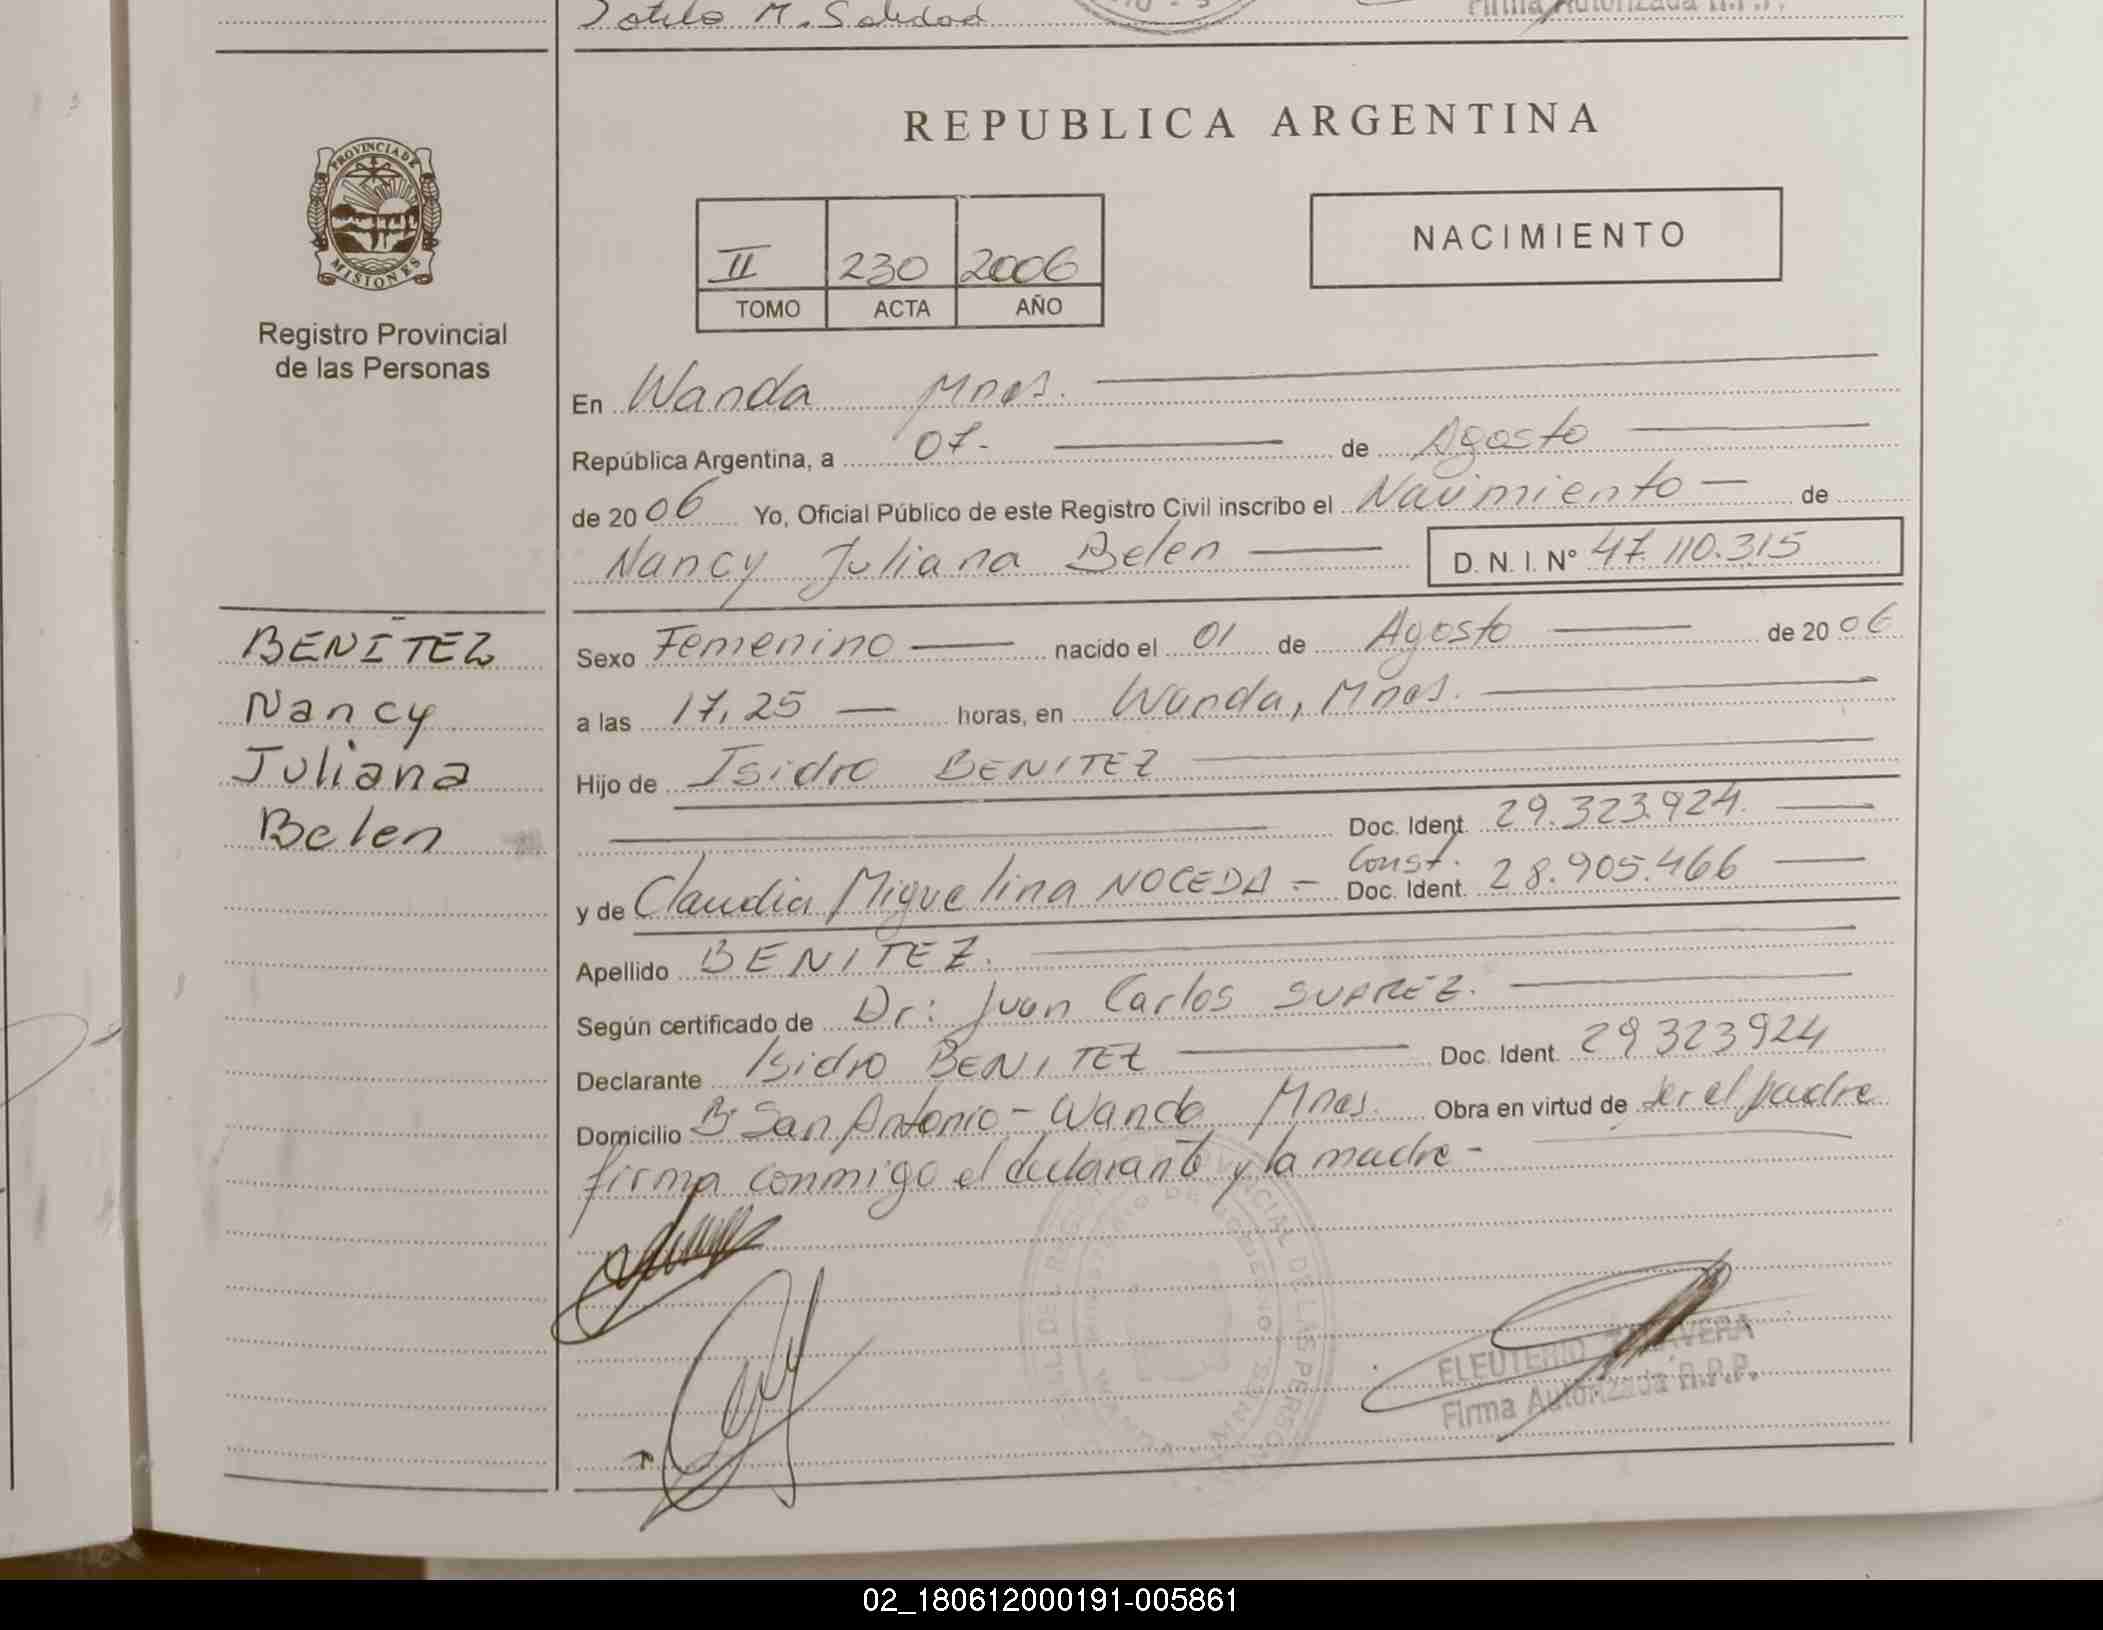 Sotelo M. Soledad
Firma Autorizada R.P.P.
PROVINCIA DE
MISIONES
Registro Provincial
de las Personas
REPUBLICA ARGENTINA
II 230 2006
TOMO ACTA AÑO
NACIMIENTO
En Wanda Mnes.
República Argentina, a 07- de Agosto
de 2006 Yo, Oficial Público de este Registro Civil inscribo el Nacimiento de
Nancy Juliana Belen D. N. I. N° 47.110.315
BENÍTEZ
Nancy
Juliana
Belen
Sexo Femenino nacido el 01 de Agosto de 2006
a las 17,25 horas, en Wanda, Mnes.
Hijo de Isidro BENITEZ
Doc. Ident. 29.323.924.
Const.
y de Claudia Miguelina NOCEDA Doc. Ident. 28.905.466
Apellido BENITEZ.
Según certificado de Dr: Juan Carlos SUAREZ.
Declarante Isidro BENITEZ Doc. Ident. 29323924
Domicilio B° San Antonio - Wanda Mnes. Obra en virtud de ser el padre
firma conmigo el declarante y la madre -
ELEUTERIO TALAVERA
Firma Autorizada R.P.P.
02_180612000191-005861